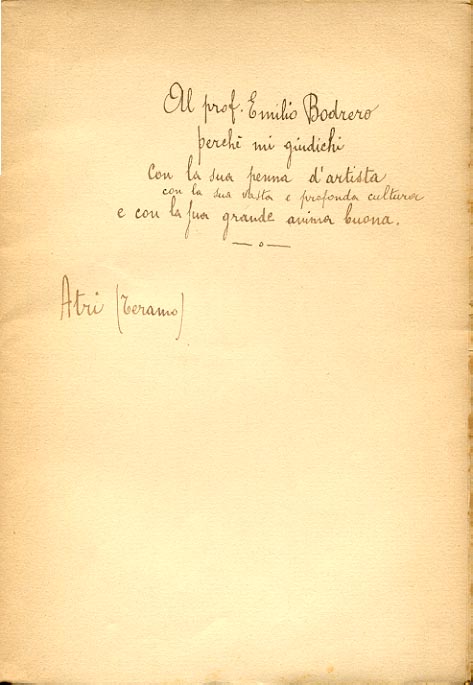 Al prof. Emilio Bodrero
perchè mi giudichi
con la sua penna d'artista
con la sua vasta e profonda cultura
e con la sua grande anima buona.
Atri (Teramo)